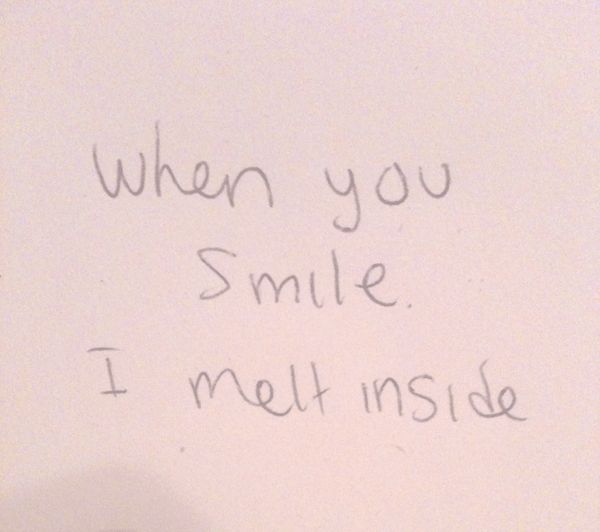 When you
Smile.
I melt inside